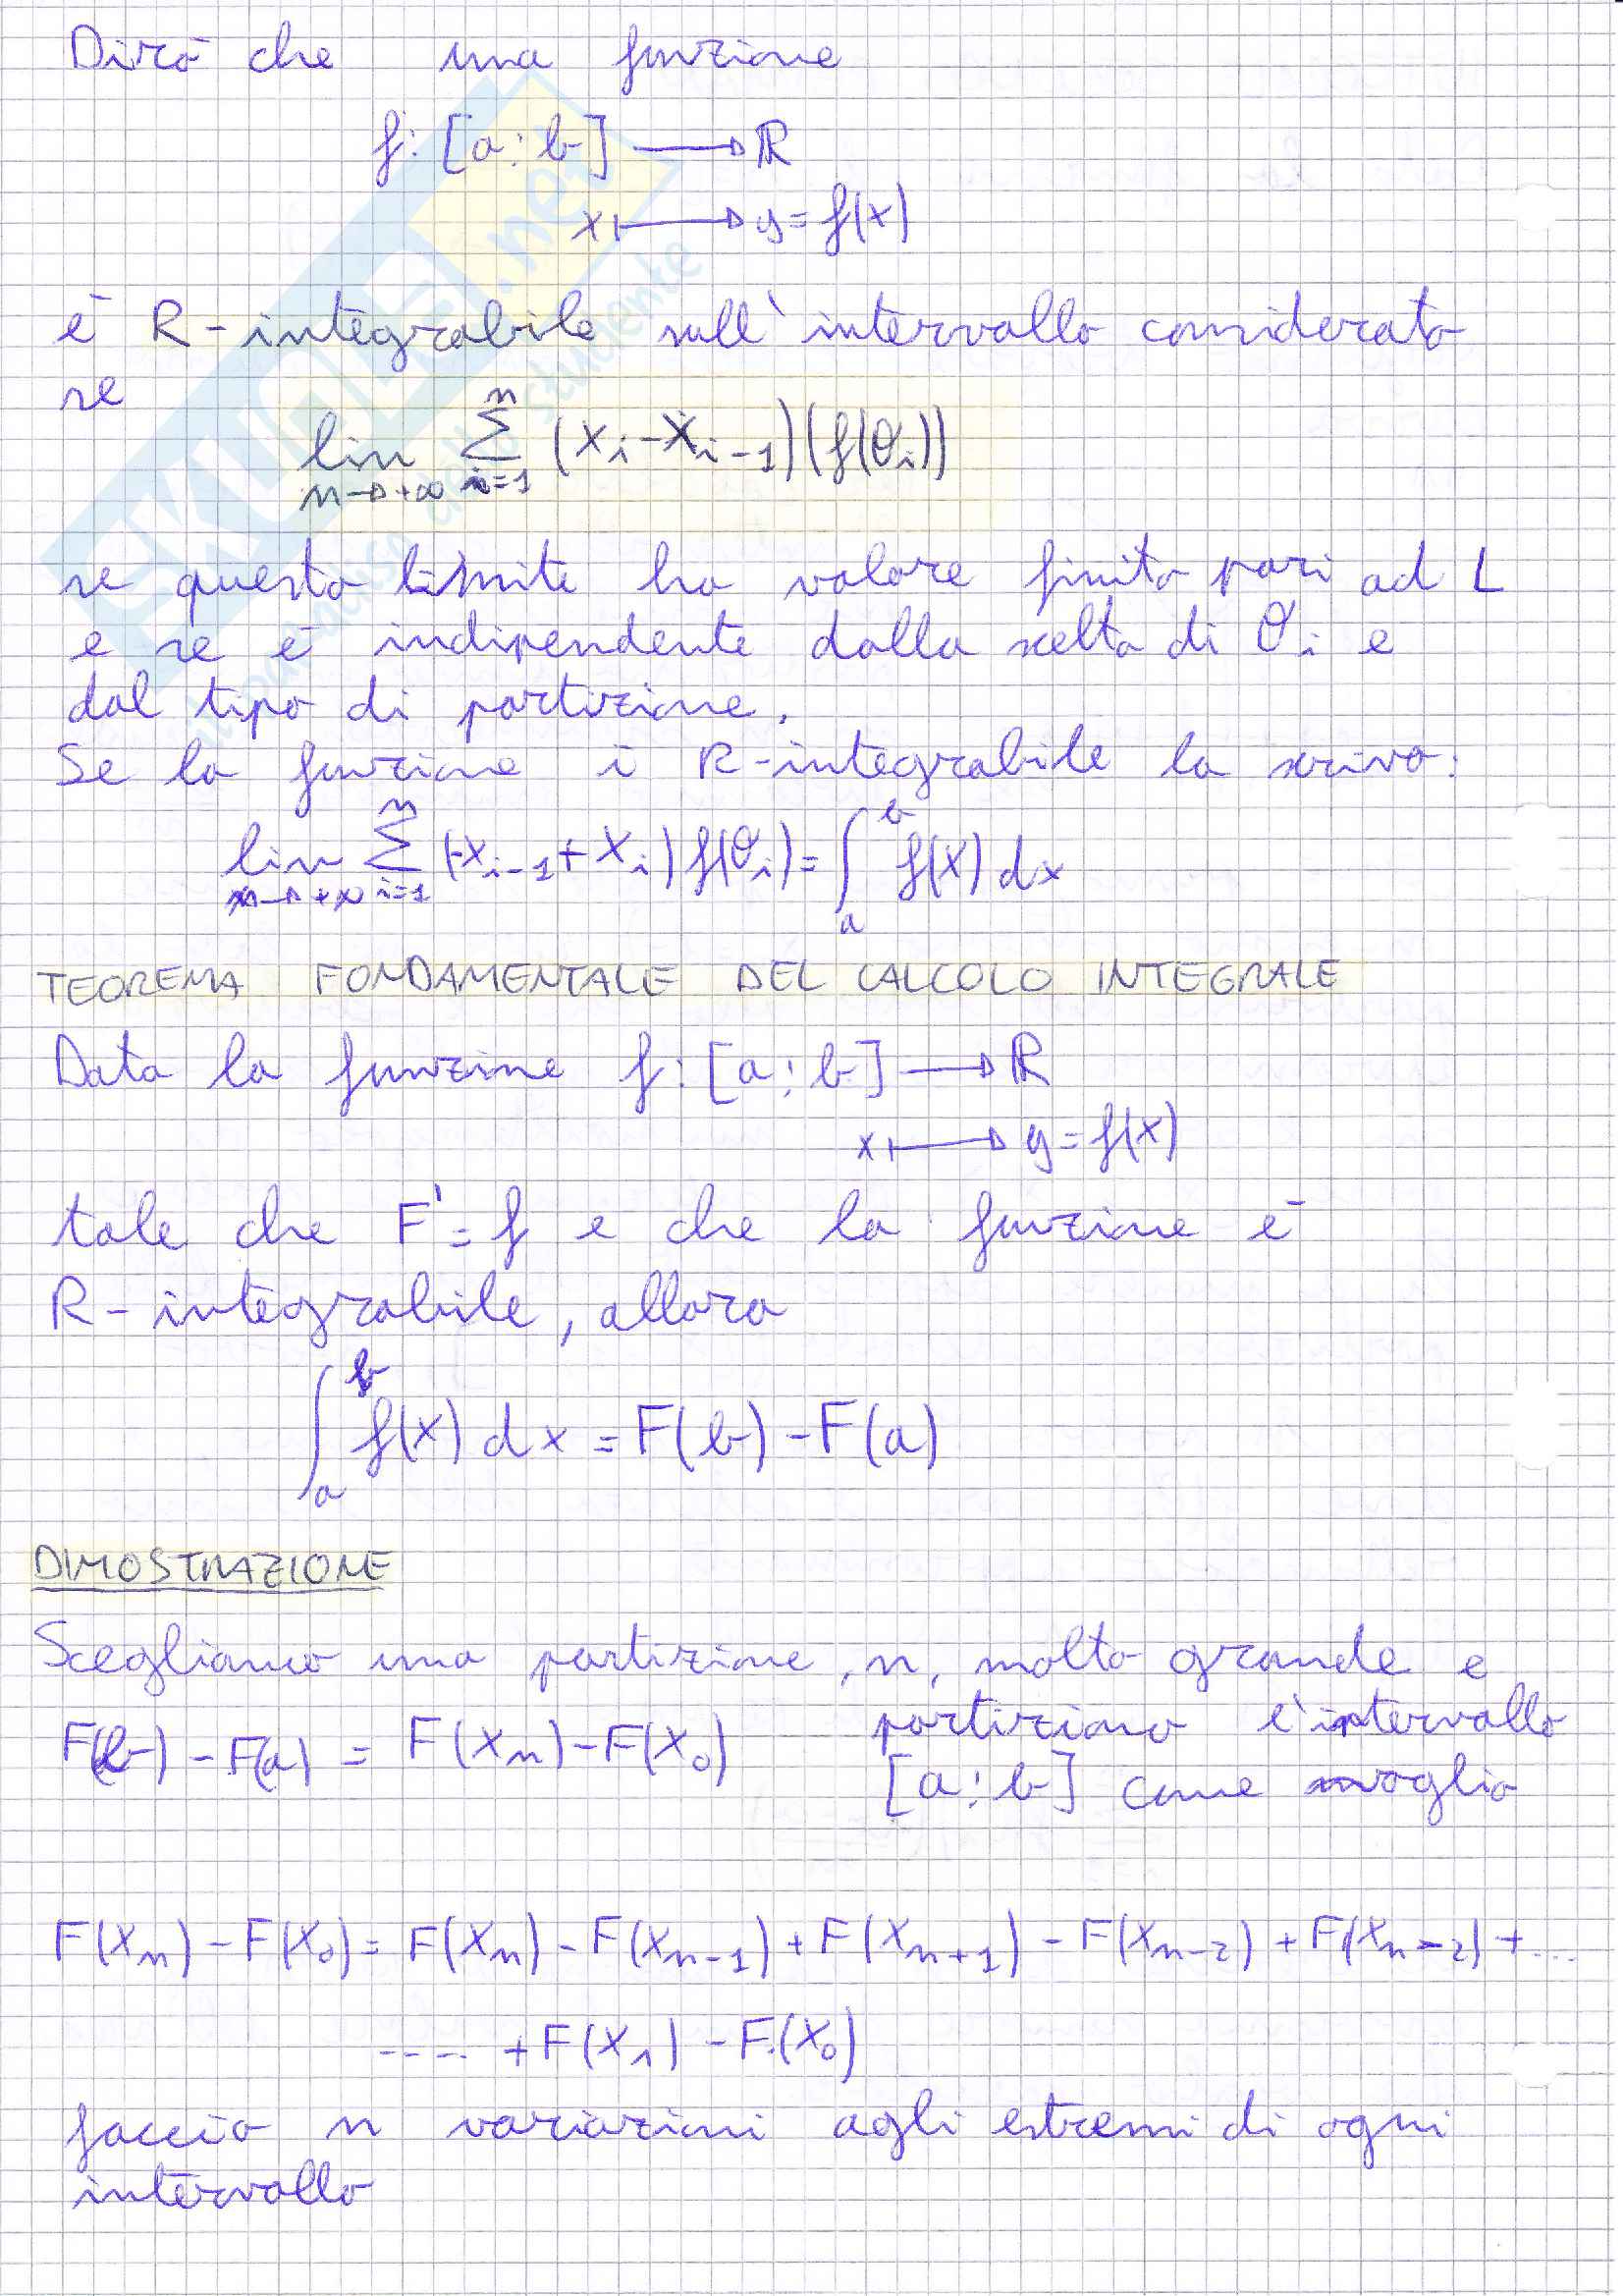 Dirò che una funzione
f: [a; b] → ℝ
x ↦ y = f(x)
è R-integrabile sull'intervallo considerato
se
lim n→+∞ Σ i=1 n (xᵢ - xᵢ₋₁)(f(θᵢ))
se questo limite ha valore finito pari ad L
e se è indipendente dalla scelta di θᵢ e
dal tipo di partizione.
Se la funzione è R-integrabile la scrivo:
lim n→+∞ Σ i=1 n (-xᵢ₋₁ + xᵢ) f(θᵢ) = ∫ₐᵇ f(x) dx
TEOREMA FONDAMENTALE DEL CALCOLO INTEGRALE
Data la funzine f: [a; b] → ℝ
x ↦ y = f(x)
tale che F' = f e che la funzione è
R-integrabile, allora
∫ₐᵇ f(x) dx = F(b) - F(a)
DIMOSTRAZIONE
Scegliamo una partizione, n, molto grande e
partiziono l'intervallo
F(b) - F(a) = F(xₙ) - F(x₀)
[a; b] come voglio
F(xₙ) - F(x₀) = F(xₙ) - F(xₙ₋₁) + F(xₙ₊₁) - F(xₙ₋₂) + F(xₙ₋₂) + ...
..... + F(x₁) - F(x₀)
faccio n variazioni agli estremi di ogni
intervallo